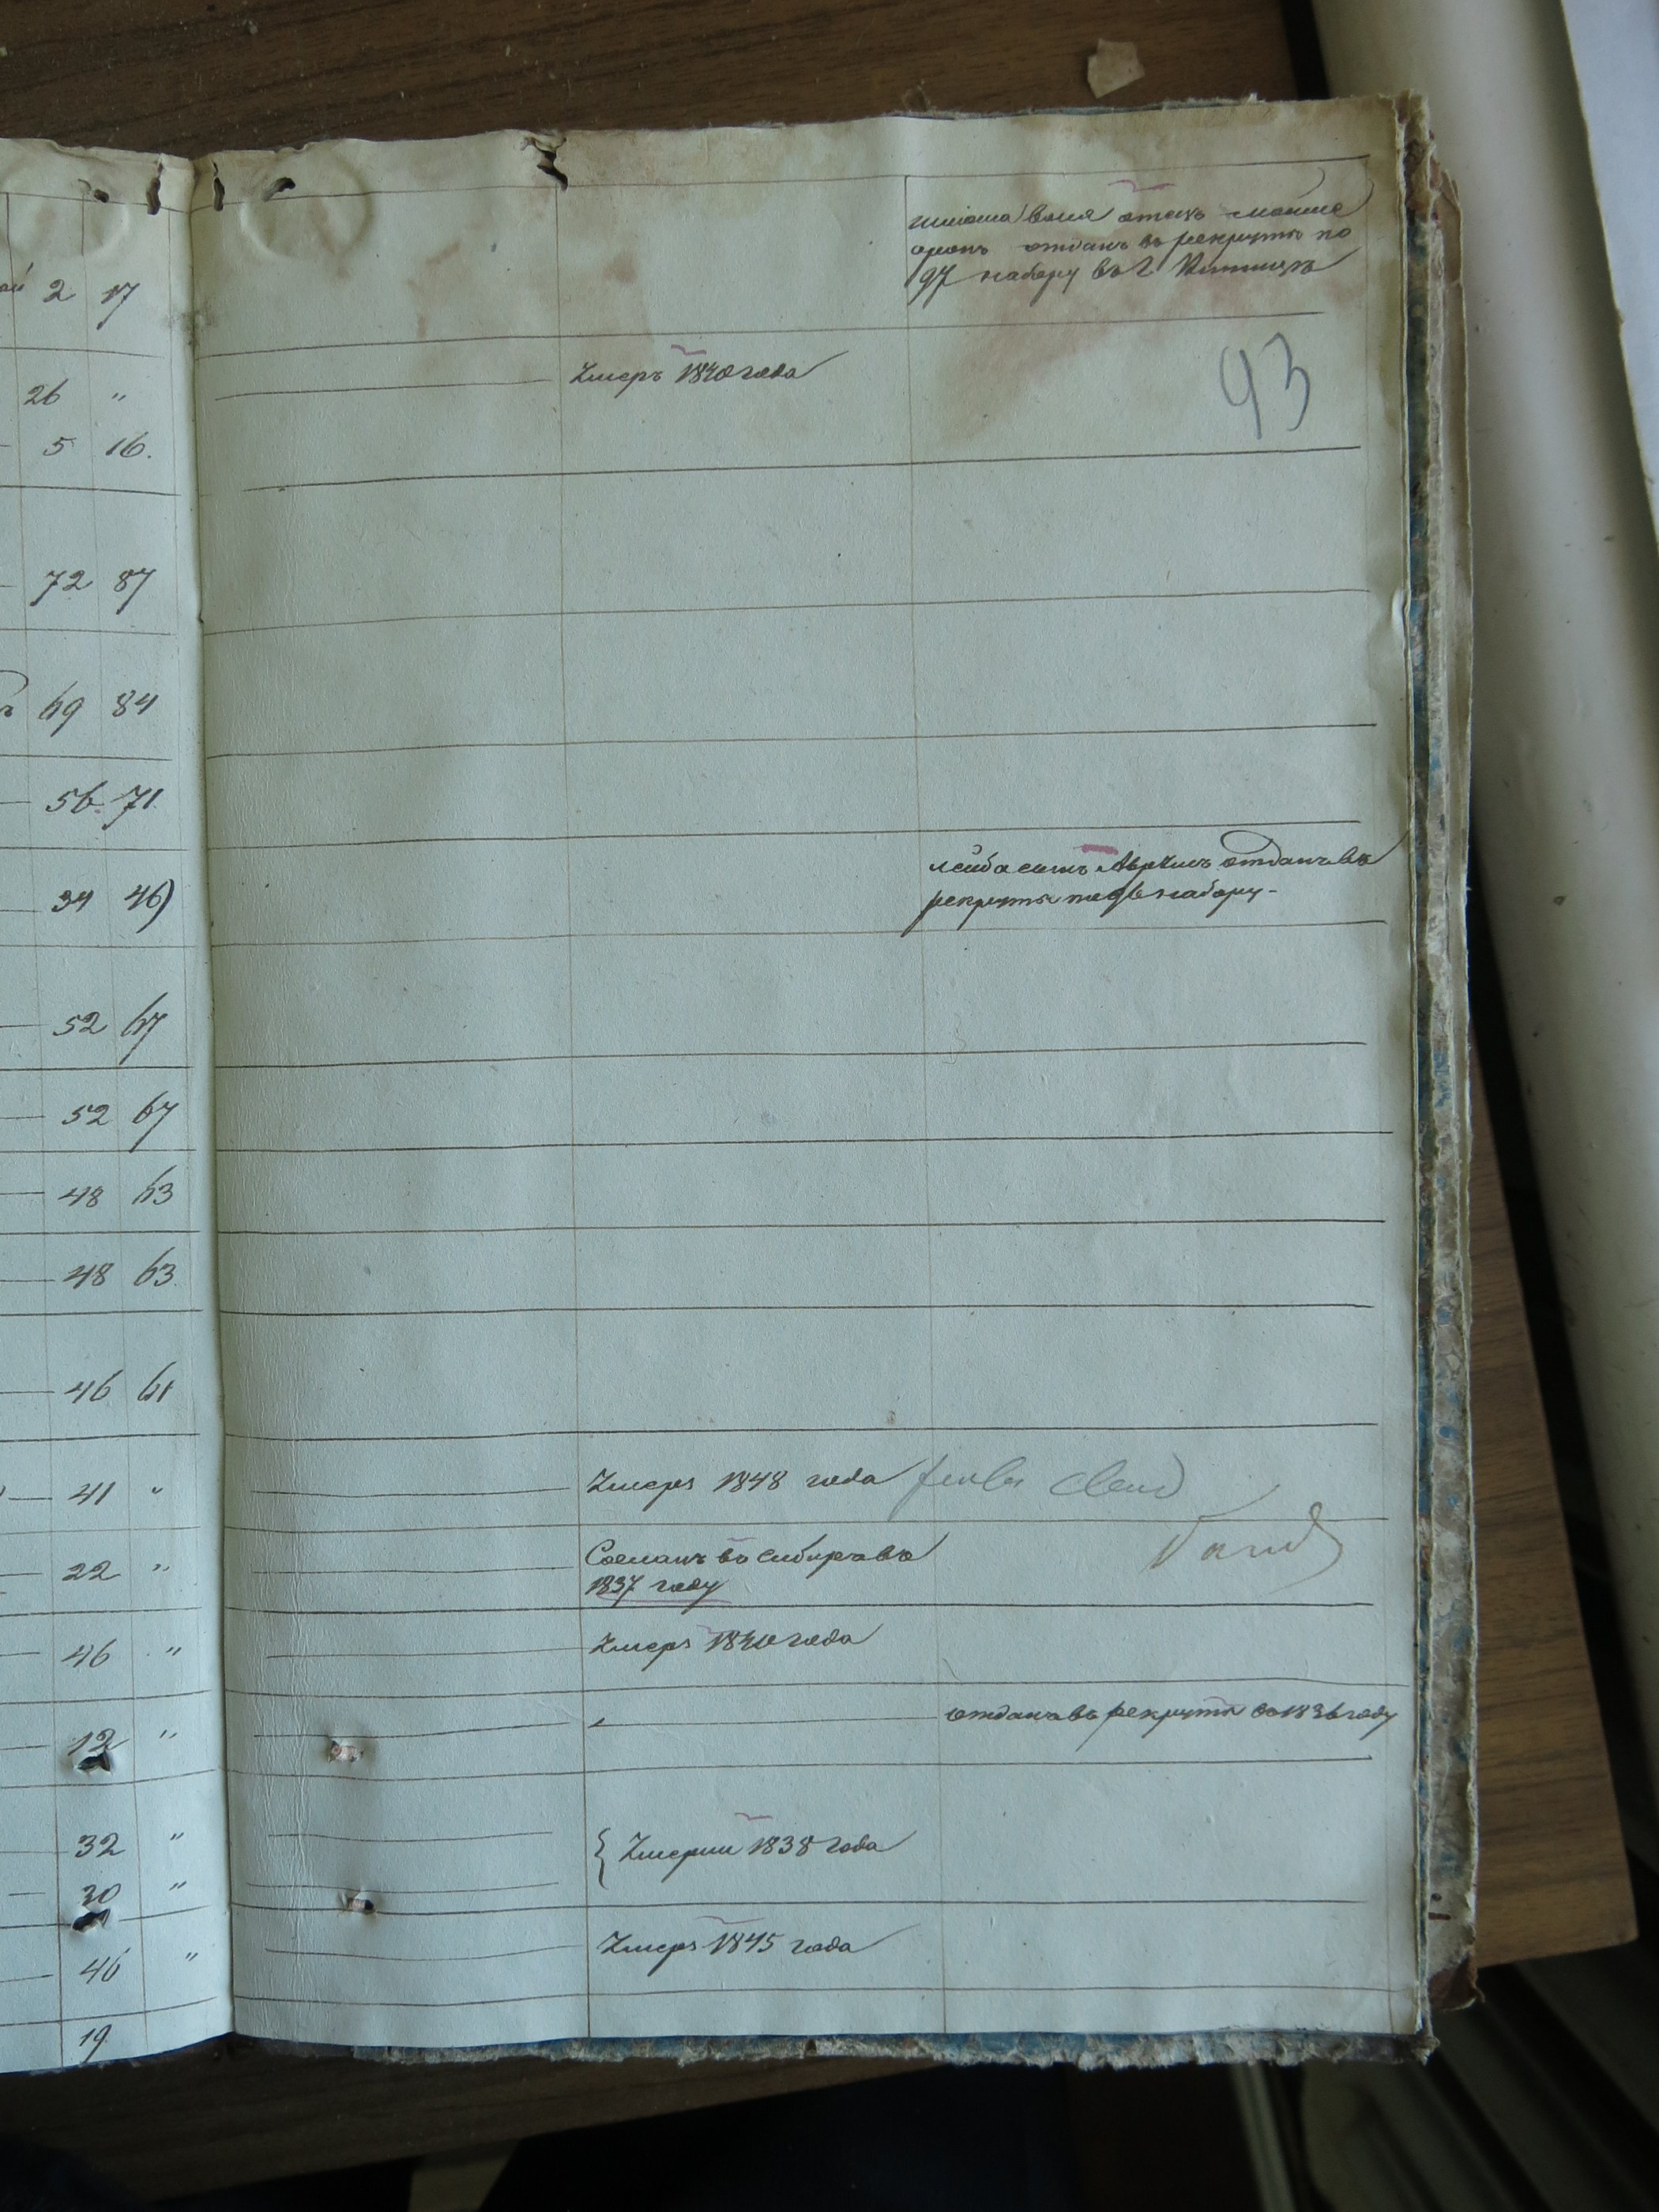 отецъ
отданъ въ рекруты по
97 набору въ г
2 17
Умеръ 1840 года
93
26 "
5 16.
72 87
69 84
56. 71.
лейба сынъ отданъ въ
рекруты по 96 набору -
34 46)
52 67
52 67
48 63
48 63.
46 61
Умеръ 1848 года
41 "
Сосланъ въ Сибирь въ
1837 году
22 "
Умеръ 1840 года
46 "
отданъ въ рекруты въ 1836 году
12 "
32 "
{ Умерли 1838 года
30 "
Умеръ 1845 года
46 "
19